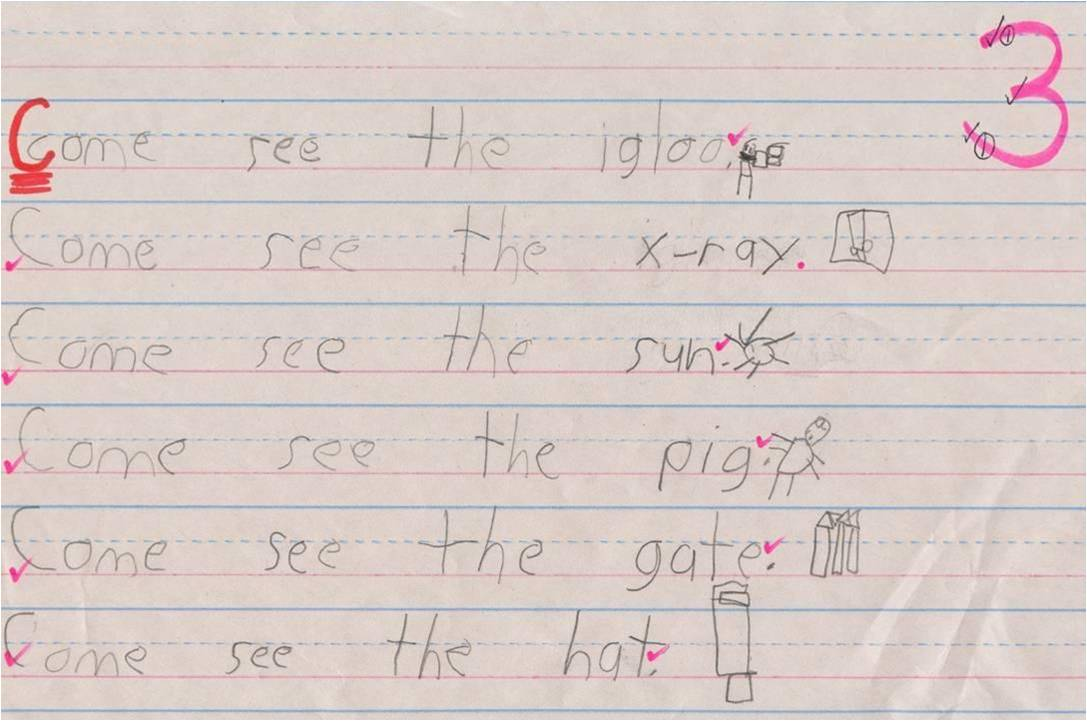 3
Come see the igloo.
Come see the x-ray.
Come see the sun.
Come see the pig.
Come see the gate.
Come see the hat.